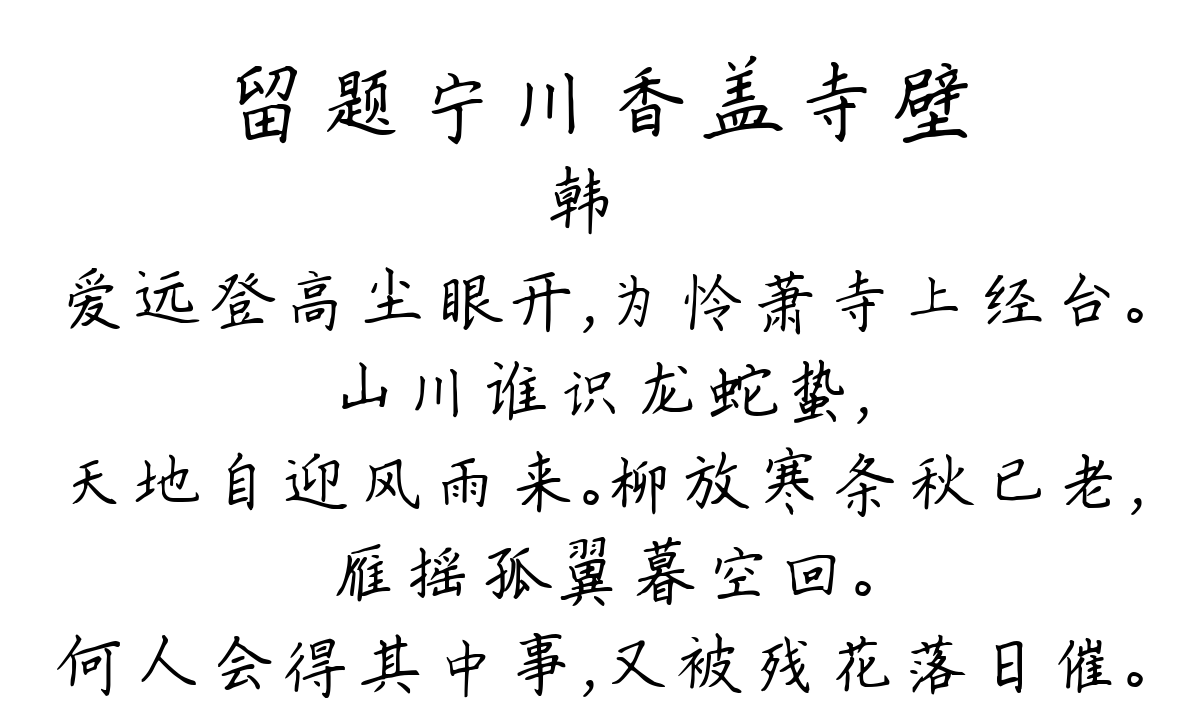 留题宁川香盖寺壁
韩
爱远登高尘眼开,为怜萧寺上经台。
山川谁识龙蛇蛰,
天地自迎风雨来。柳放寒条秋已老,
雁摇孤翼暮空回。
何人会得其中事,又被残花落日催。